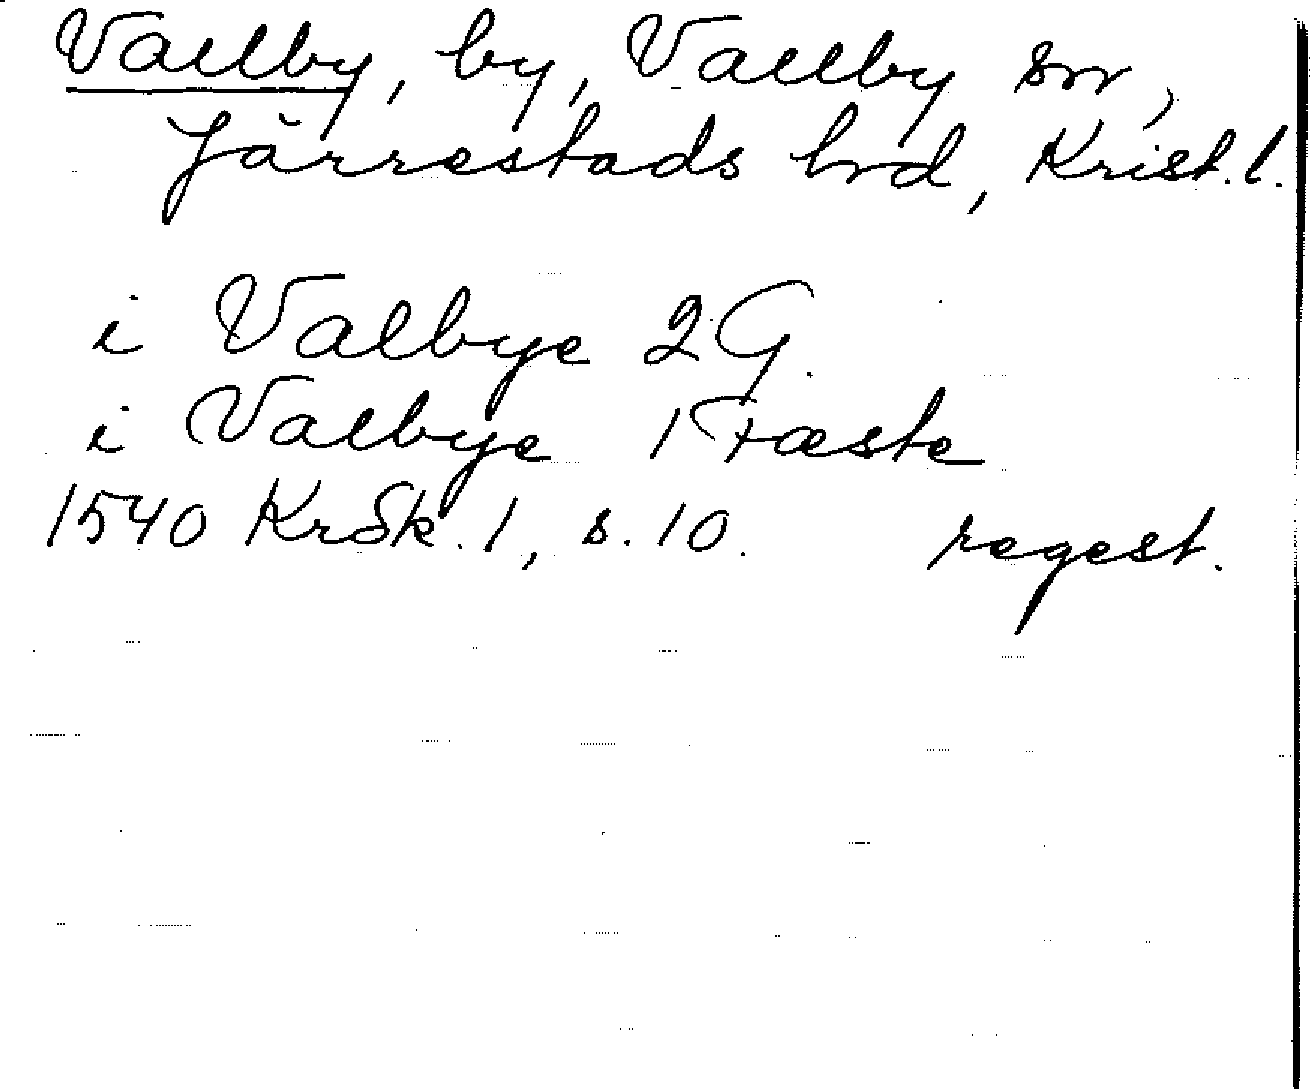 Vallby, by, Vallby sn,
Järrestads hrd, Krist. l.
i Valbye 2 G.
i Valbye 1 Fæste
1540 KrSk. 1, s. 10. regest.